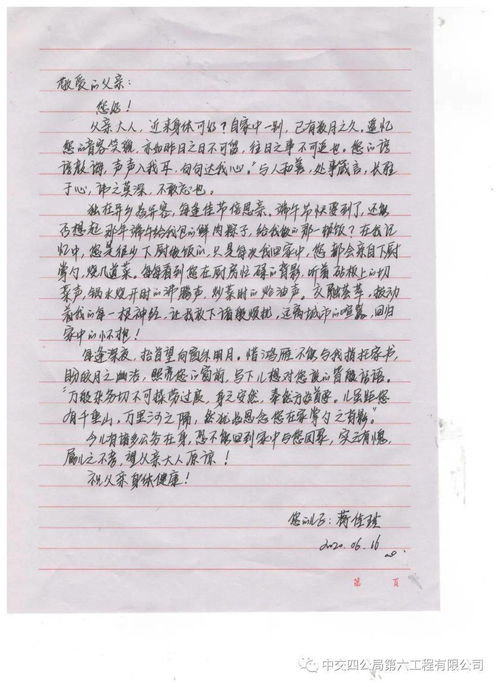 敬爱的父亲：
您好！
父亲大人，近来身体可好？自家中一别，已有数月之久。追忆
您的音容笑貌，亦如昨日之日不可留，往日之事不可追也。您的谆
谆教诲，声声入我耳，句句达我心。"与人和善，处事箴言，长驻
于心，诉之莫深，不敢忘也。
独在异乡为异客，每逢佳节倍思亲，端午节快要到了，还能
否想起那年端午给我包的鲜肉粽子，给我做的那一顿饭？在我记
忆中，您是很少下厨做饭的，只是每次我回家中，您都会亲自下厨
掌勺，烧几道菜。每每看到您在厨房忙碌的背影，听着砧板上的切
菜声，锅水烧开时的沸腾声，炒菜时的炝油声。交融荟萃，拨动
着我的每一根神经，让我放下诸般烦扰，远离城市的喧嚣，回归
家中的怀想！
每逢深夜，抬首望向窗外明月。惜鸿雁不能与我指托家书，
助皎月之幽洁，照亮您的窗前，写下儿想对您说的肺腑话语。
"万般家务切不可操劳过度，身之安然，泰然为首要。儿虽距您
有千重山，万里河之隔，然犹为思念您在家掌勺之背影。"
今儿有诸多公务在身，恐不能回到家中与您团聚，实之有愧，
属儿之不孝，望父亲大人原谅！
祝父亲身体健康！
您的儿子：蒋佳
2020.06.16
第 页
中交四公局第六工程有限公司